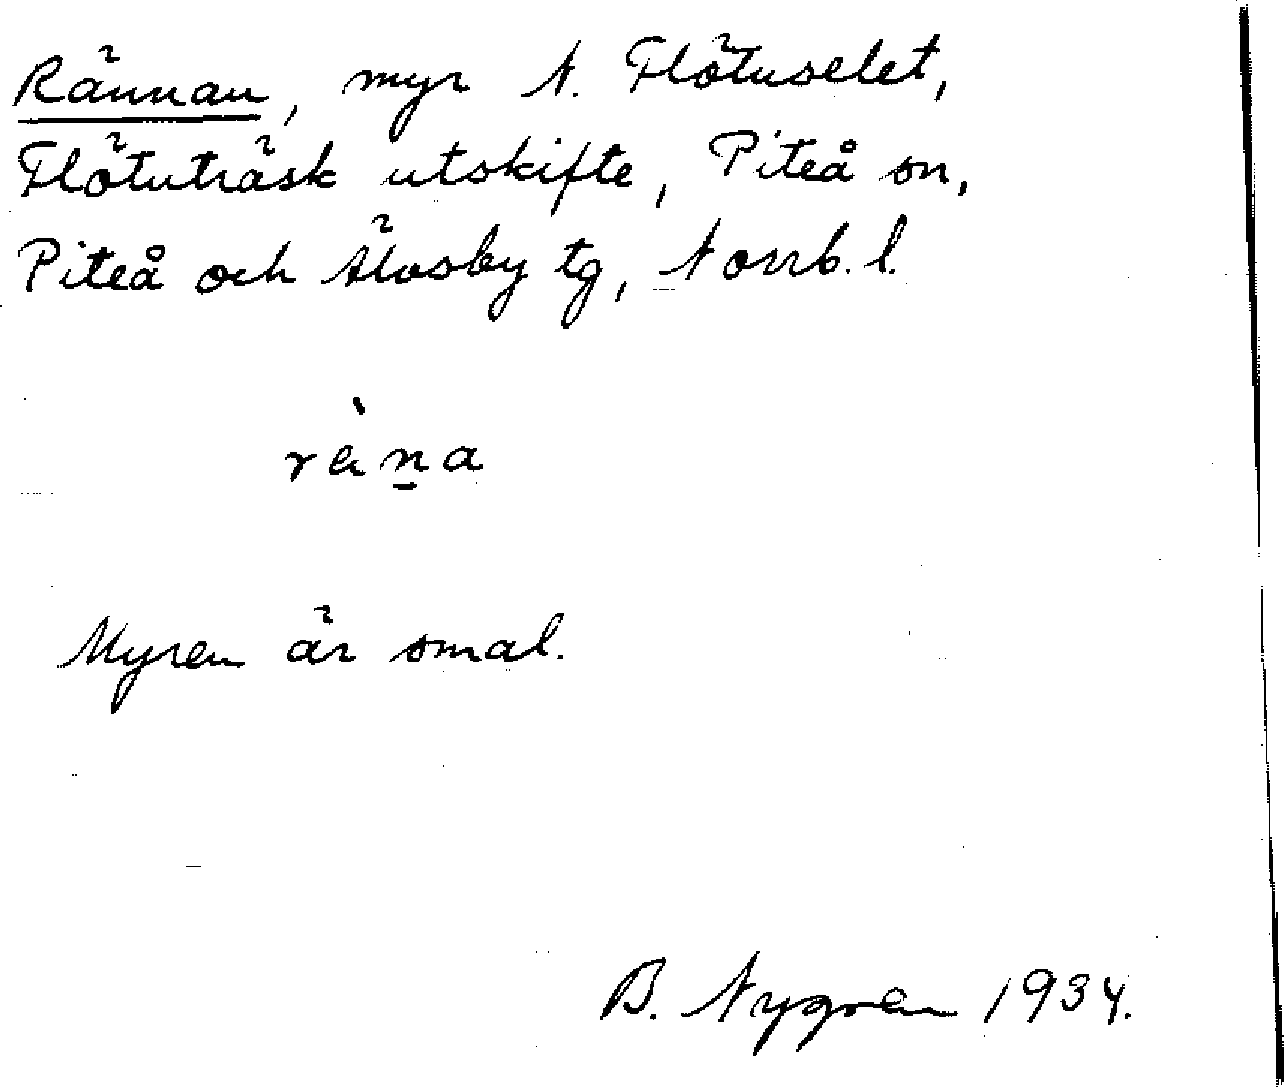 Rännan, myr N. Flötuselet,
Flötuträsk utskifte, Piteå sn,
Piteå och Älvsby tg, Norrb. l.
rä̀n̲a
Myren är smal.
B. Nygren 1934.